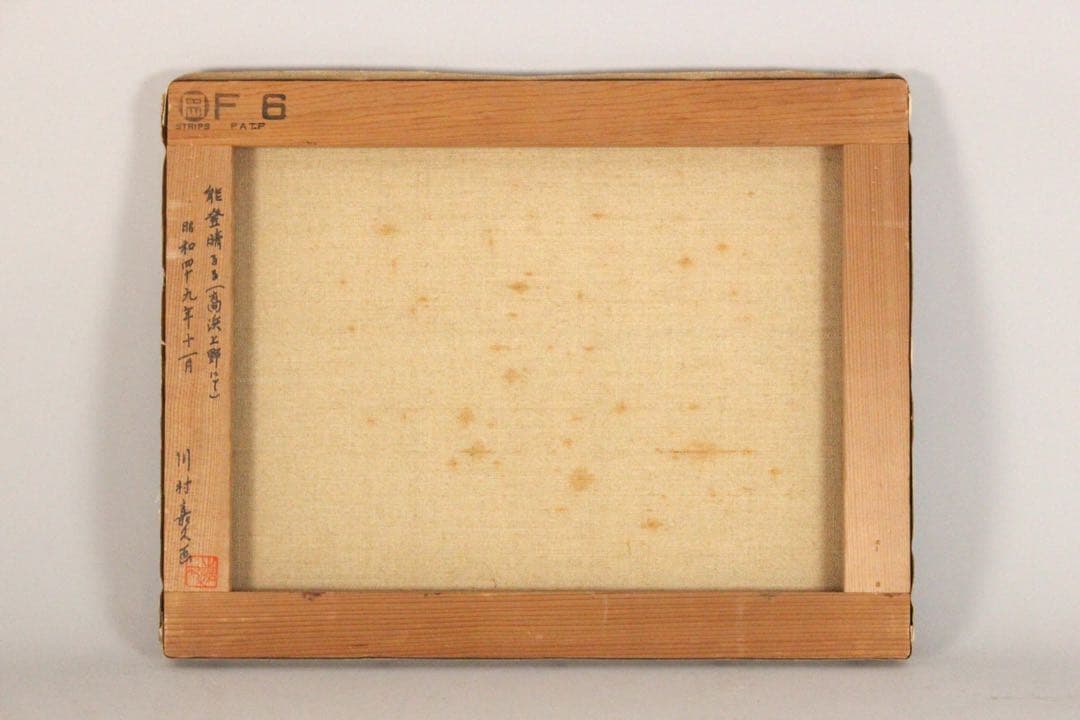 F 6
STRIPS PAT.P
能登晴るる(高浜上野にて)
昭和四十九年十一月
川村嘉久画